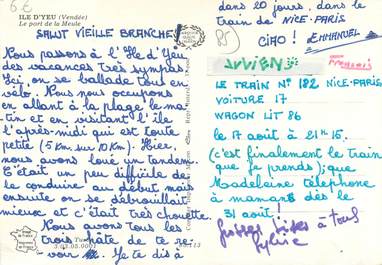 6€
ILE D'YEU (Vendée)
Le port de la Meule
SALUT VIEILLE BRANCHE!
Nous passons à l'Ile d'Yeu
des vacances très sympas.
Ici, on se ballade tous en
vélo. Nous nous occupons
en allant à la plage le ma-
tin et en visitant l'île
l'après-midi qui est toute
petite (5 Km sur 10 Km). Hier,
nous avons loué un tandem.
C'était un peu difficile de
le conduire au début mais
ensuite on se débrouillait
mieux et c'était très chouette.
Nous avons tous les
trois hâte de te re-
voir. Je te dis à
dans 20 jours, dans le
train de NICE-PARIS
CIAO! EMMANUEL
VIVIEN
François
LE TRAIN N° 182 NICE-PARIS
VOITURE 17
WAGON LIT 86
le 17 août à 21H15.
(c'est finalement le train
que je prends); que
Madelaine téléphone
à maman dès le
31 août!
grosses bises à tous
Sylvie